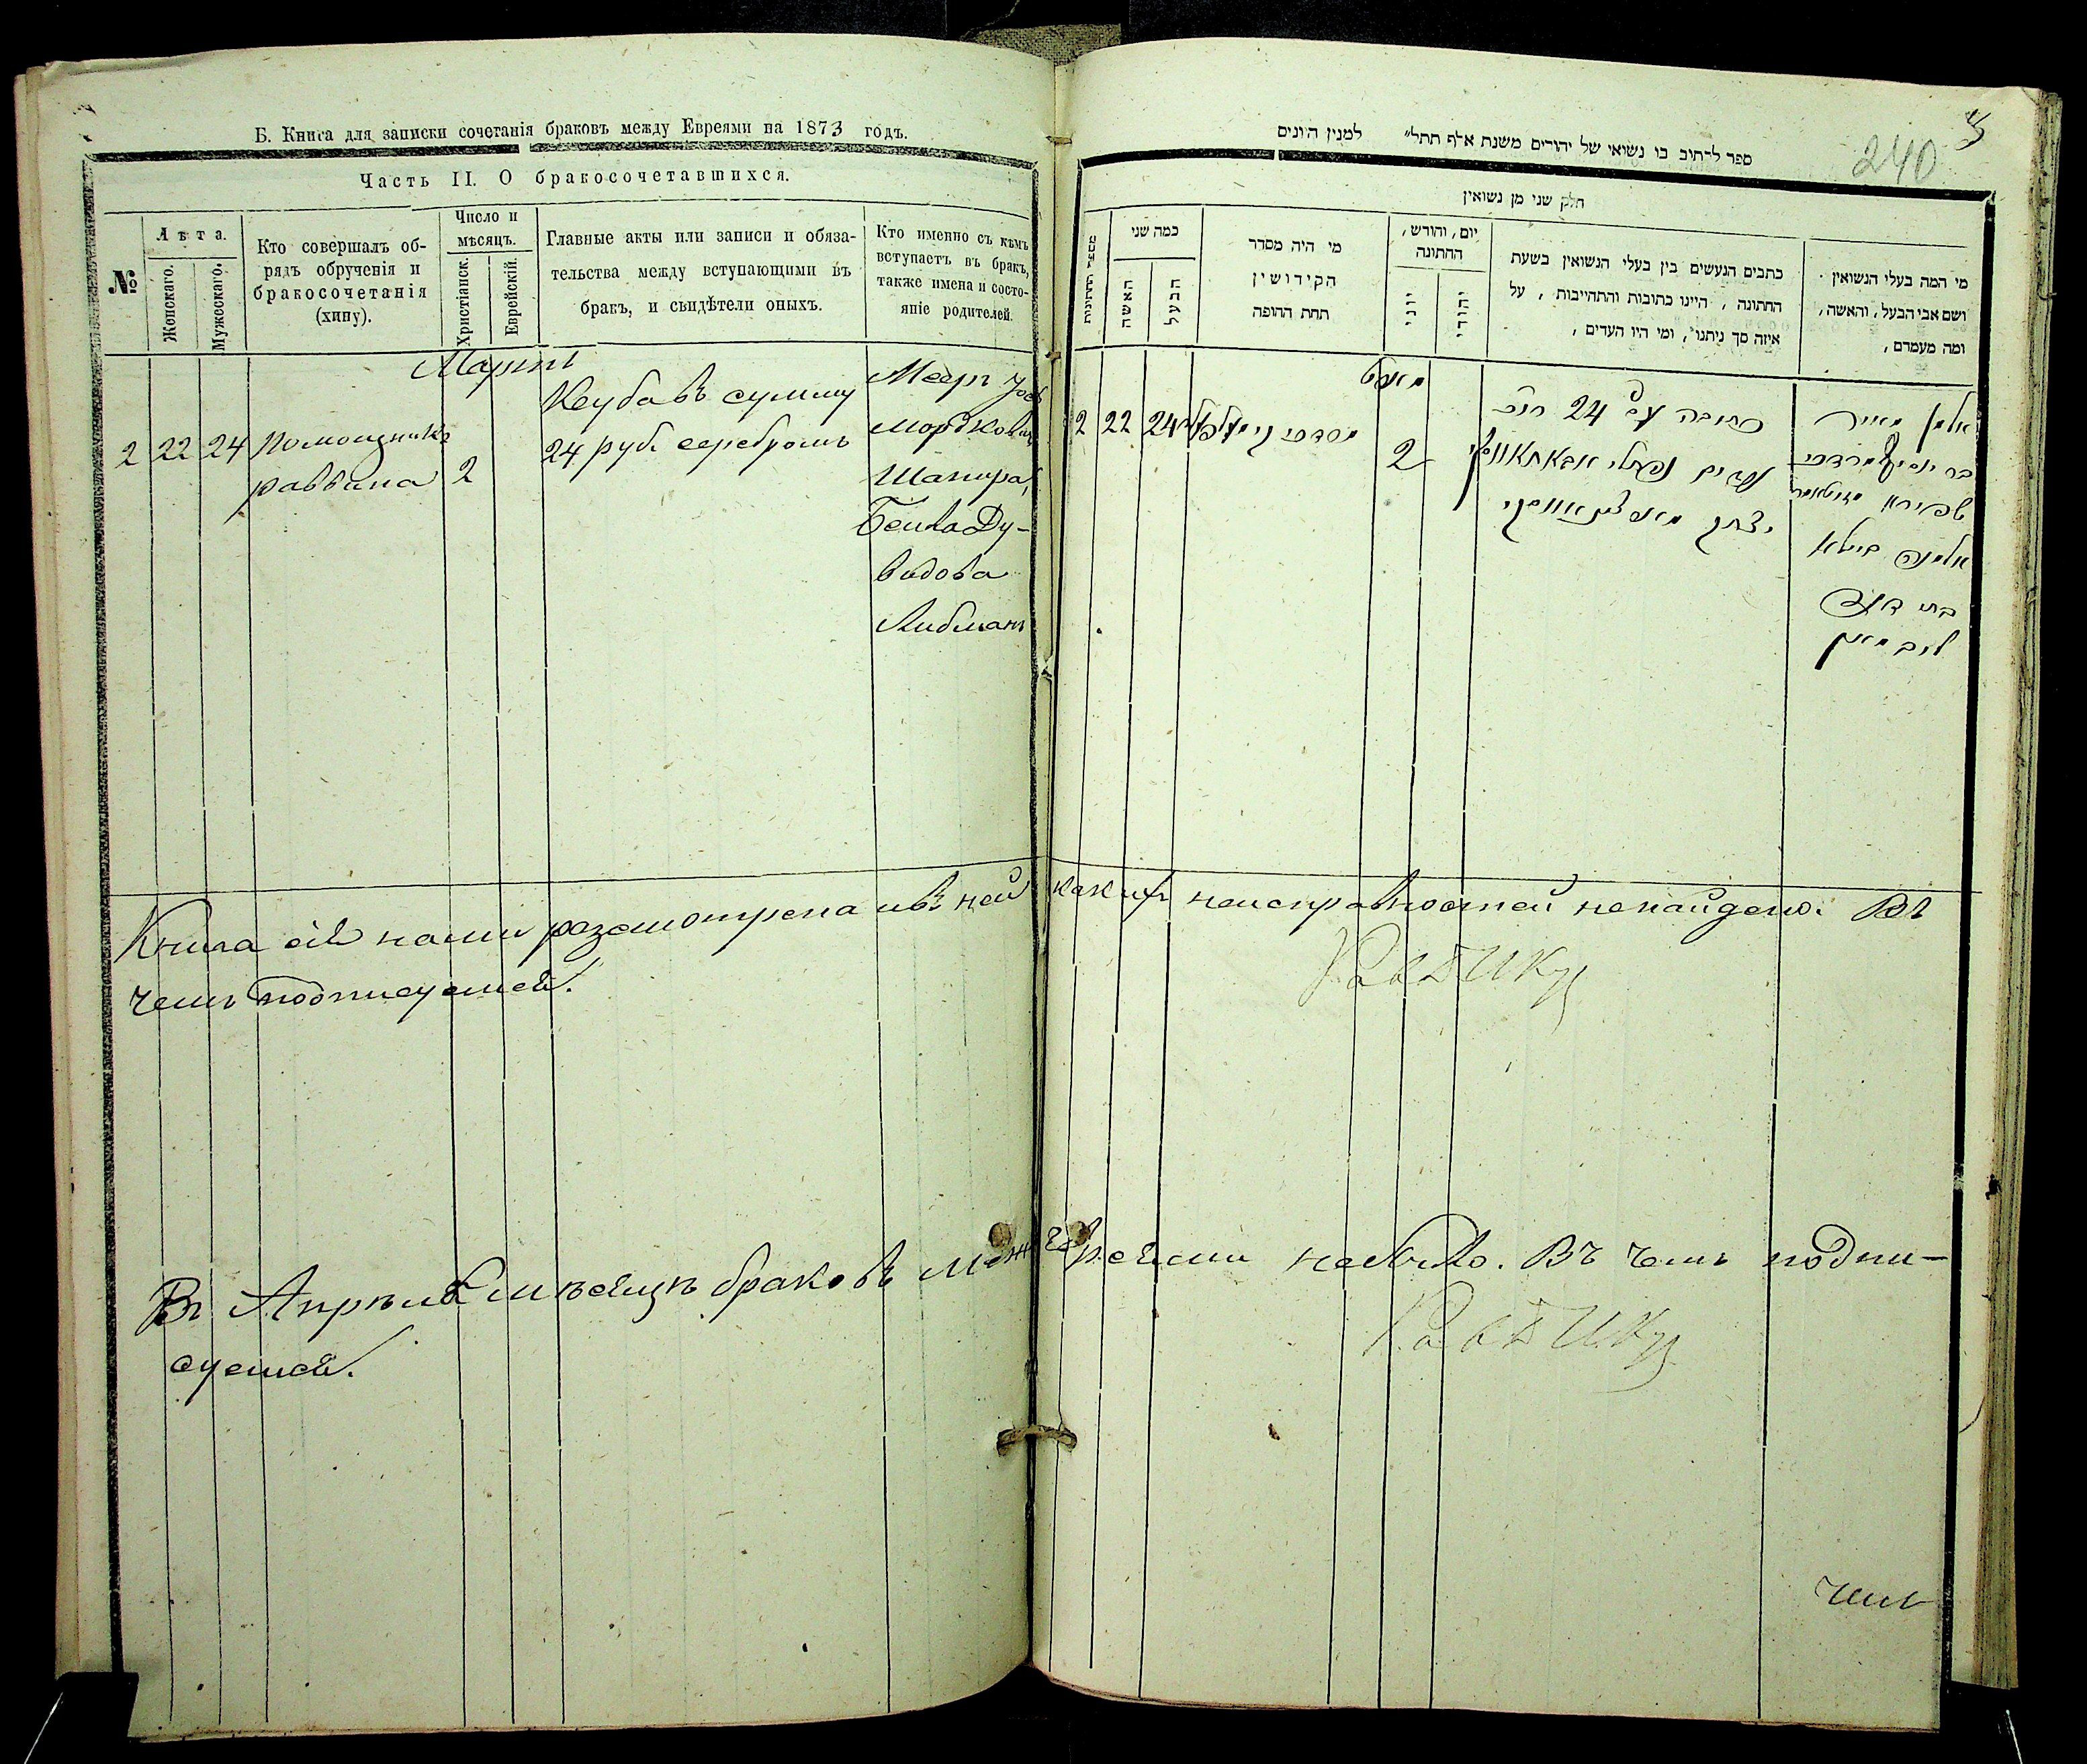 Б. Книга для записки сочетанія браковъ между Евреями на 1873 годъ.
Часть II. О бракосочетавшихся.
№
Лѣта.
Женскаго.
Мужескаго.
Кто совершалъ об-
рядъ обрученія и
бракосочетанія
(хипу).
Число и
мѣсяцъ.
Христіанск.
Еврейскій.
Главные акты или записи и обяза-
тельства между вступающими въ
бракъ, и свидѣтели оныхъ.
Кто именно съ кѣмъ
вступаетъ въ бракъ,
также имена и состо-
яніе родителей.
Мартъ
2 22 24
Помощникъ
раввина
2
Кеуба въ сумму
24 руб. серебромъ
Мееръ
Мордковичъ
Шапира,
Бейла Ду-
видова
Либманъ
ספר לכתוב בו נשואי של יהודים משנת אלף תתל״ למנין היונים
240
חלק שני מן נשואין
מספר החתונות
כמה שני
האשה
הבעל
מי היה מסדר
הקידושין
תחת החופה
יום, וחודש,
החתונה
יוני
יהודי
כתבים הנעשים בין בעלי הנשואין בשעת
החתונה, היינו כתובות והתחייבות, על
איזה סך ניתנו, ומי היו העדים,
מי המה בעלי הנשואין
ושם אבי הבעל, והאשה,
ומה מעמדם,
מארט
2 22 24
2
כתובה 24
אלמן מאיר
שפירא
אלמנה ביילא
בת
ליבמאן
Книга сія нами разсмотрена и въ ней какихъ неисправностей ненайдено. Въ
чемъ подписуемся.
Въ Апрѣлѣ мѣсяцѣ браковъ меж евреями небыло. Въ чемъ подпи-
суемся.